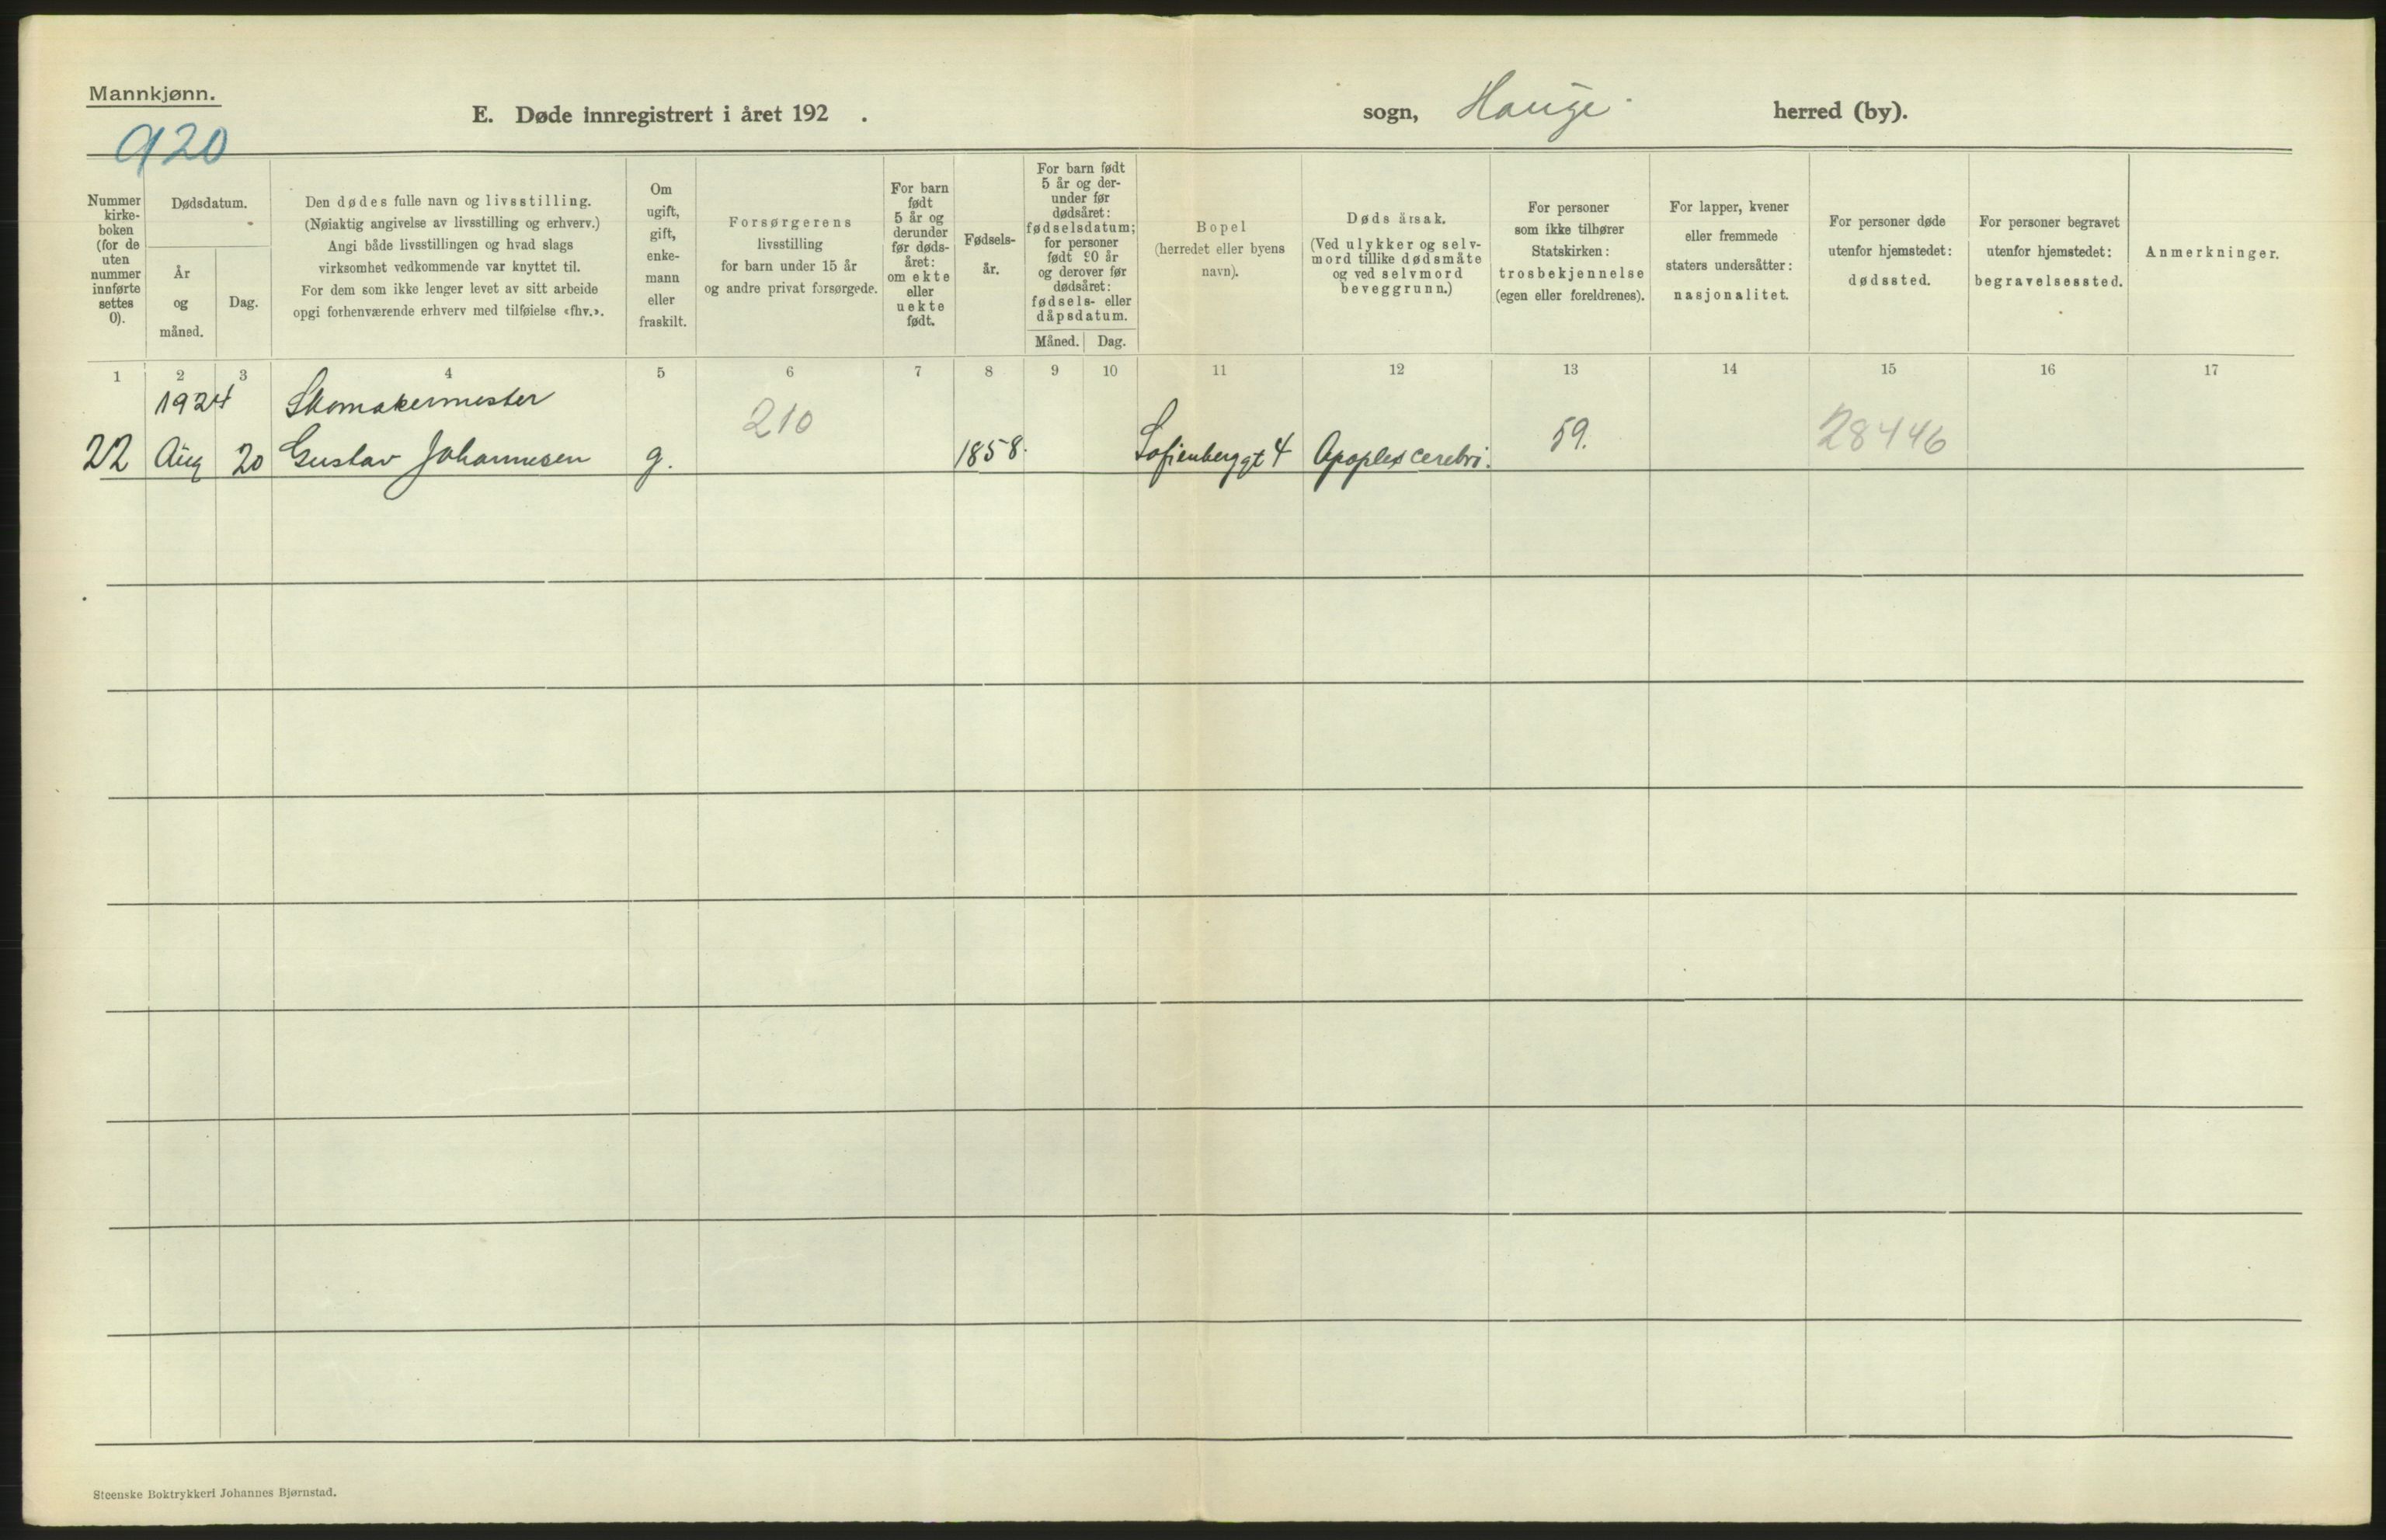 Mannkjønn.
E. Døde innregistrert i året 192 .
sogn, Hauge herred (by).
920
Nummer
kirke-
boken
(for de
uten
nummer
innførte
settes
0).
Dødsdatum.
År
og
måned.
Dag.
Den dødes fulle navn og livsstilling.
(Nøiaktig angivelse av livsstilling og erhverv.)
Angi både livsstillingen og hvad slags
virksomhet vedkommende var knyttet til.
For dem som ikke lenger levet av sitt arbeide
opgi forhenværende erhverv med tilføielse «fhv.».
Om
ugift,
gift,
enke-
mann
eller
fraskilt.
Forsørgerens
livsstilling
for barn under 15 år
og andre privat forsørgede.
For barn
født
5 år og
derunder
før døds-
året:
om ekte
eller
uekte
født.
Fødsels-
år.
For barn født
5 år og der-
under før
dødsåret:
fødselsdatum;
for personer
født 90 år
og derover før
dødsåret:
fødsels- eller
dåpsdatum.
Måned. Dag.
Bopel
(herredet eller byens
navn).
Døds årsak.
(Ved ulykker og selv-
mord tillike dødsmåte
og ved selvmord
beveggrunn.)
For personer
som ikke tilhører
Statskirken:
trosbekjennelse
(egen eller foreldrenes).
For lapper, kvener
eller fremmede
staters undersåtter:
nasjonalitet.
For personer døde
utenfor hjemstedet:
dødssted.
For personer begravet
utenfor hjemstedet:
begravelsessted.
Anmerkninger.
1 2 3 4 5 6 7 8 9 10 11 12 13 14 15 16 17
1924 Skomakermester 210
22 Aug 20 Gustav Johannesen g. 1858. Sofienberggt 4 Apoplex cerebri. 59. 28446
Steenske Boktrykkeri Johannes Bjørnstad.